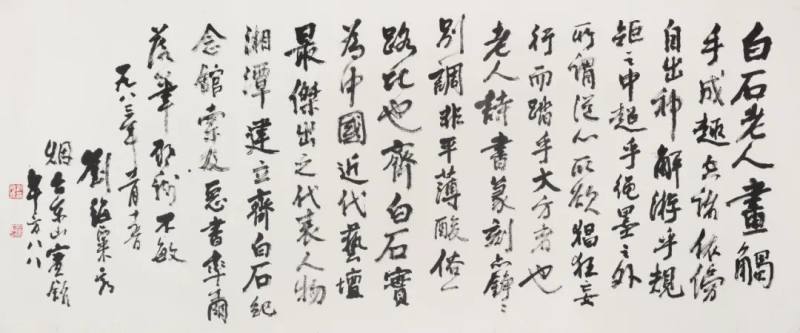 白石老人畫觸
手成趣空諸依傍
自出神解游乎規
矩之中超乎繩墨之外
所謂從心所欲猖狂妄
行而蹈乎大方者也
老人詩書篆刻亦錚々
別調非平薄酸俗一
路比也齊白石實
為中國近代藝壇
最傑出之代表人物
湘潭建立齊白石紀
念館索及惡書率爾
落筆不敏
一九八三年
劉海粟
烟台東山賓館
年方八八